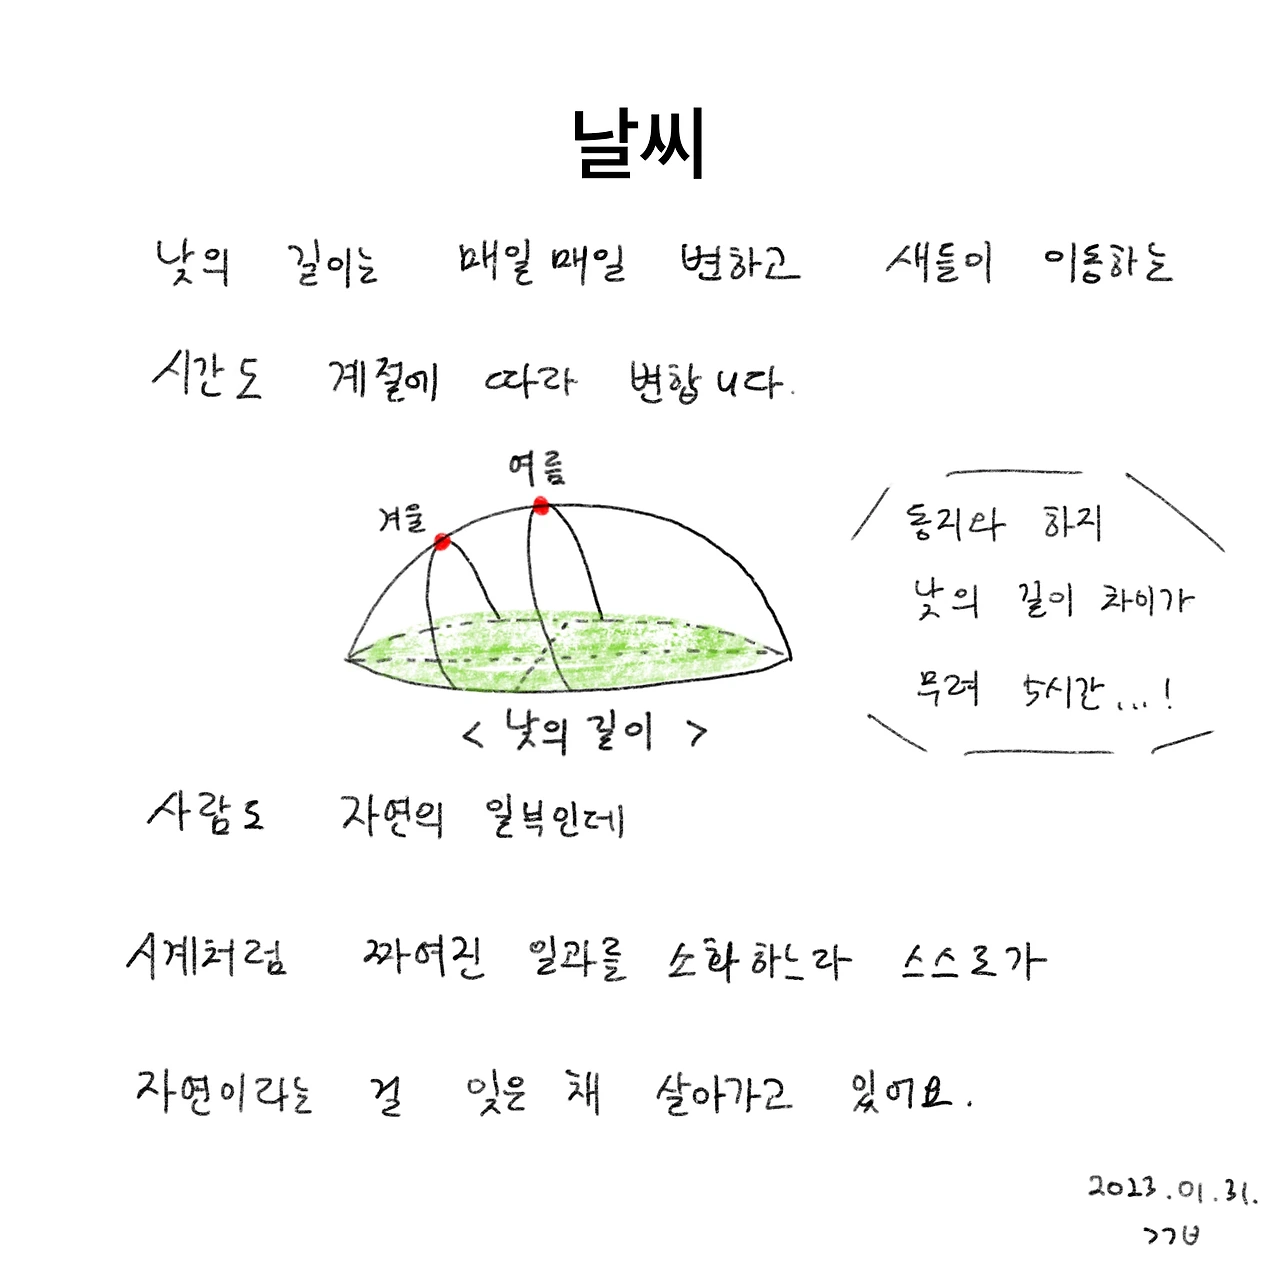 날씨
낮의 길이는 매일매일 변하고 새들이 이동하는
시간도 계절에 따라 변합니다.
여름
겨울
동지와 하지
낮의 길이 차이가
무려 5시간...!
< 낮의 길이 >
사람도 자연의 일부인데
시계처럼 짜여진 일과를 소화하느라 스스로가
자연이라는 걸 잊은 채 살아가고 있어요.
2023.01.31.
ㄱㄱㅂ